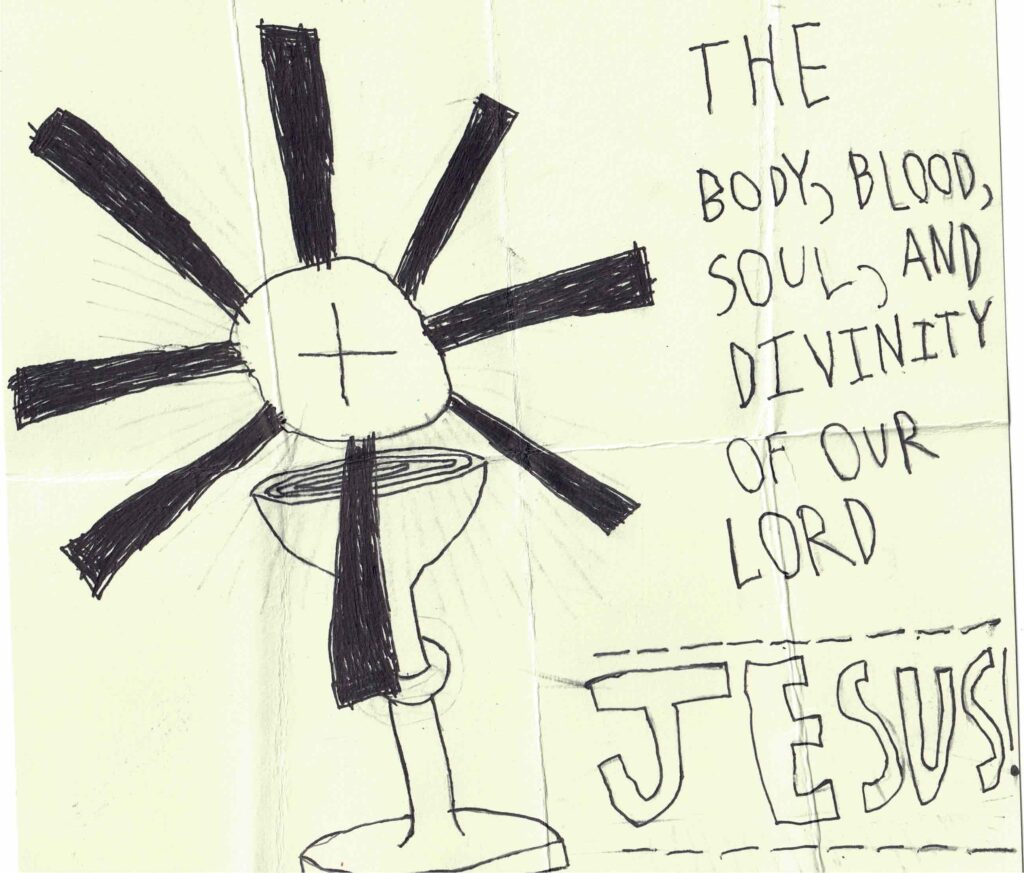 THE
BODY, BLOOD,
SOUL, AND
DIVINITY
OF OUR
LORD
JESUS!